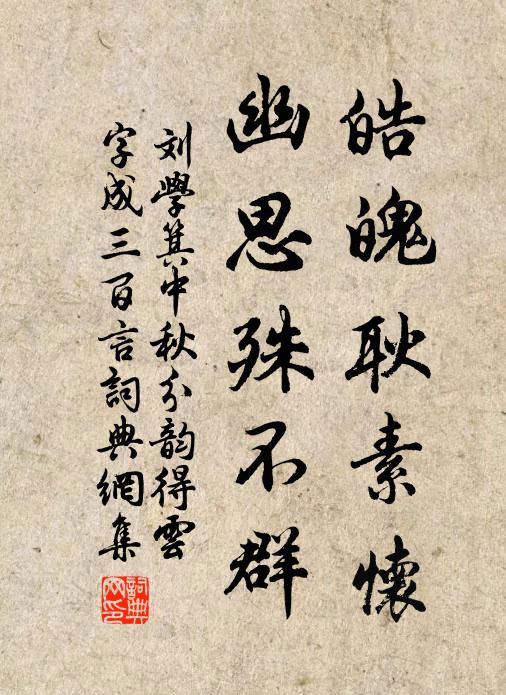 皓魄耿素懷
幽思殊不群
刘學箕中秋分韵得雲
字成三百言詞典網集
詞典
网印